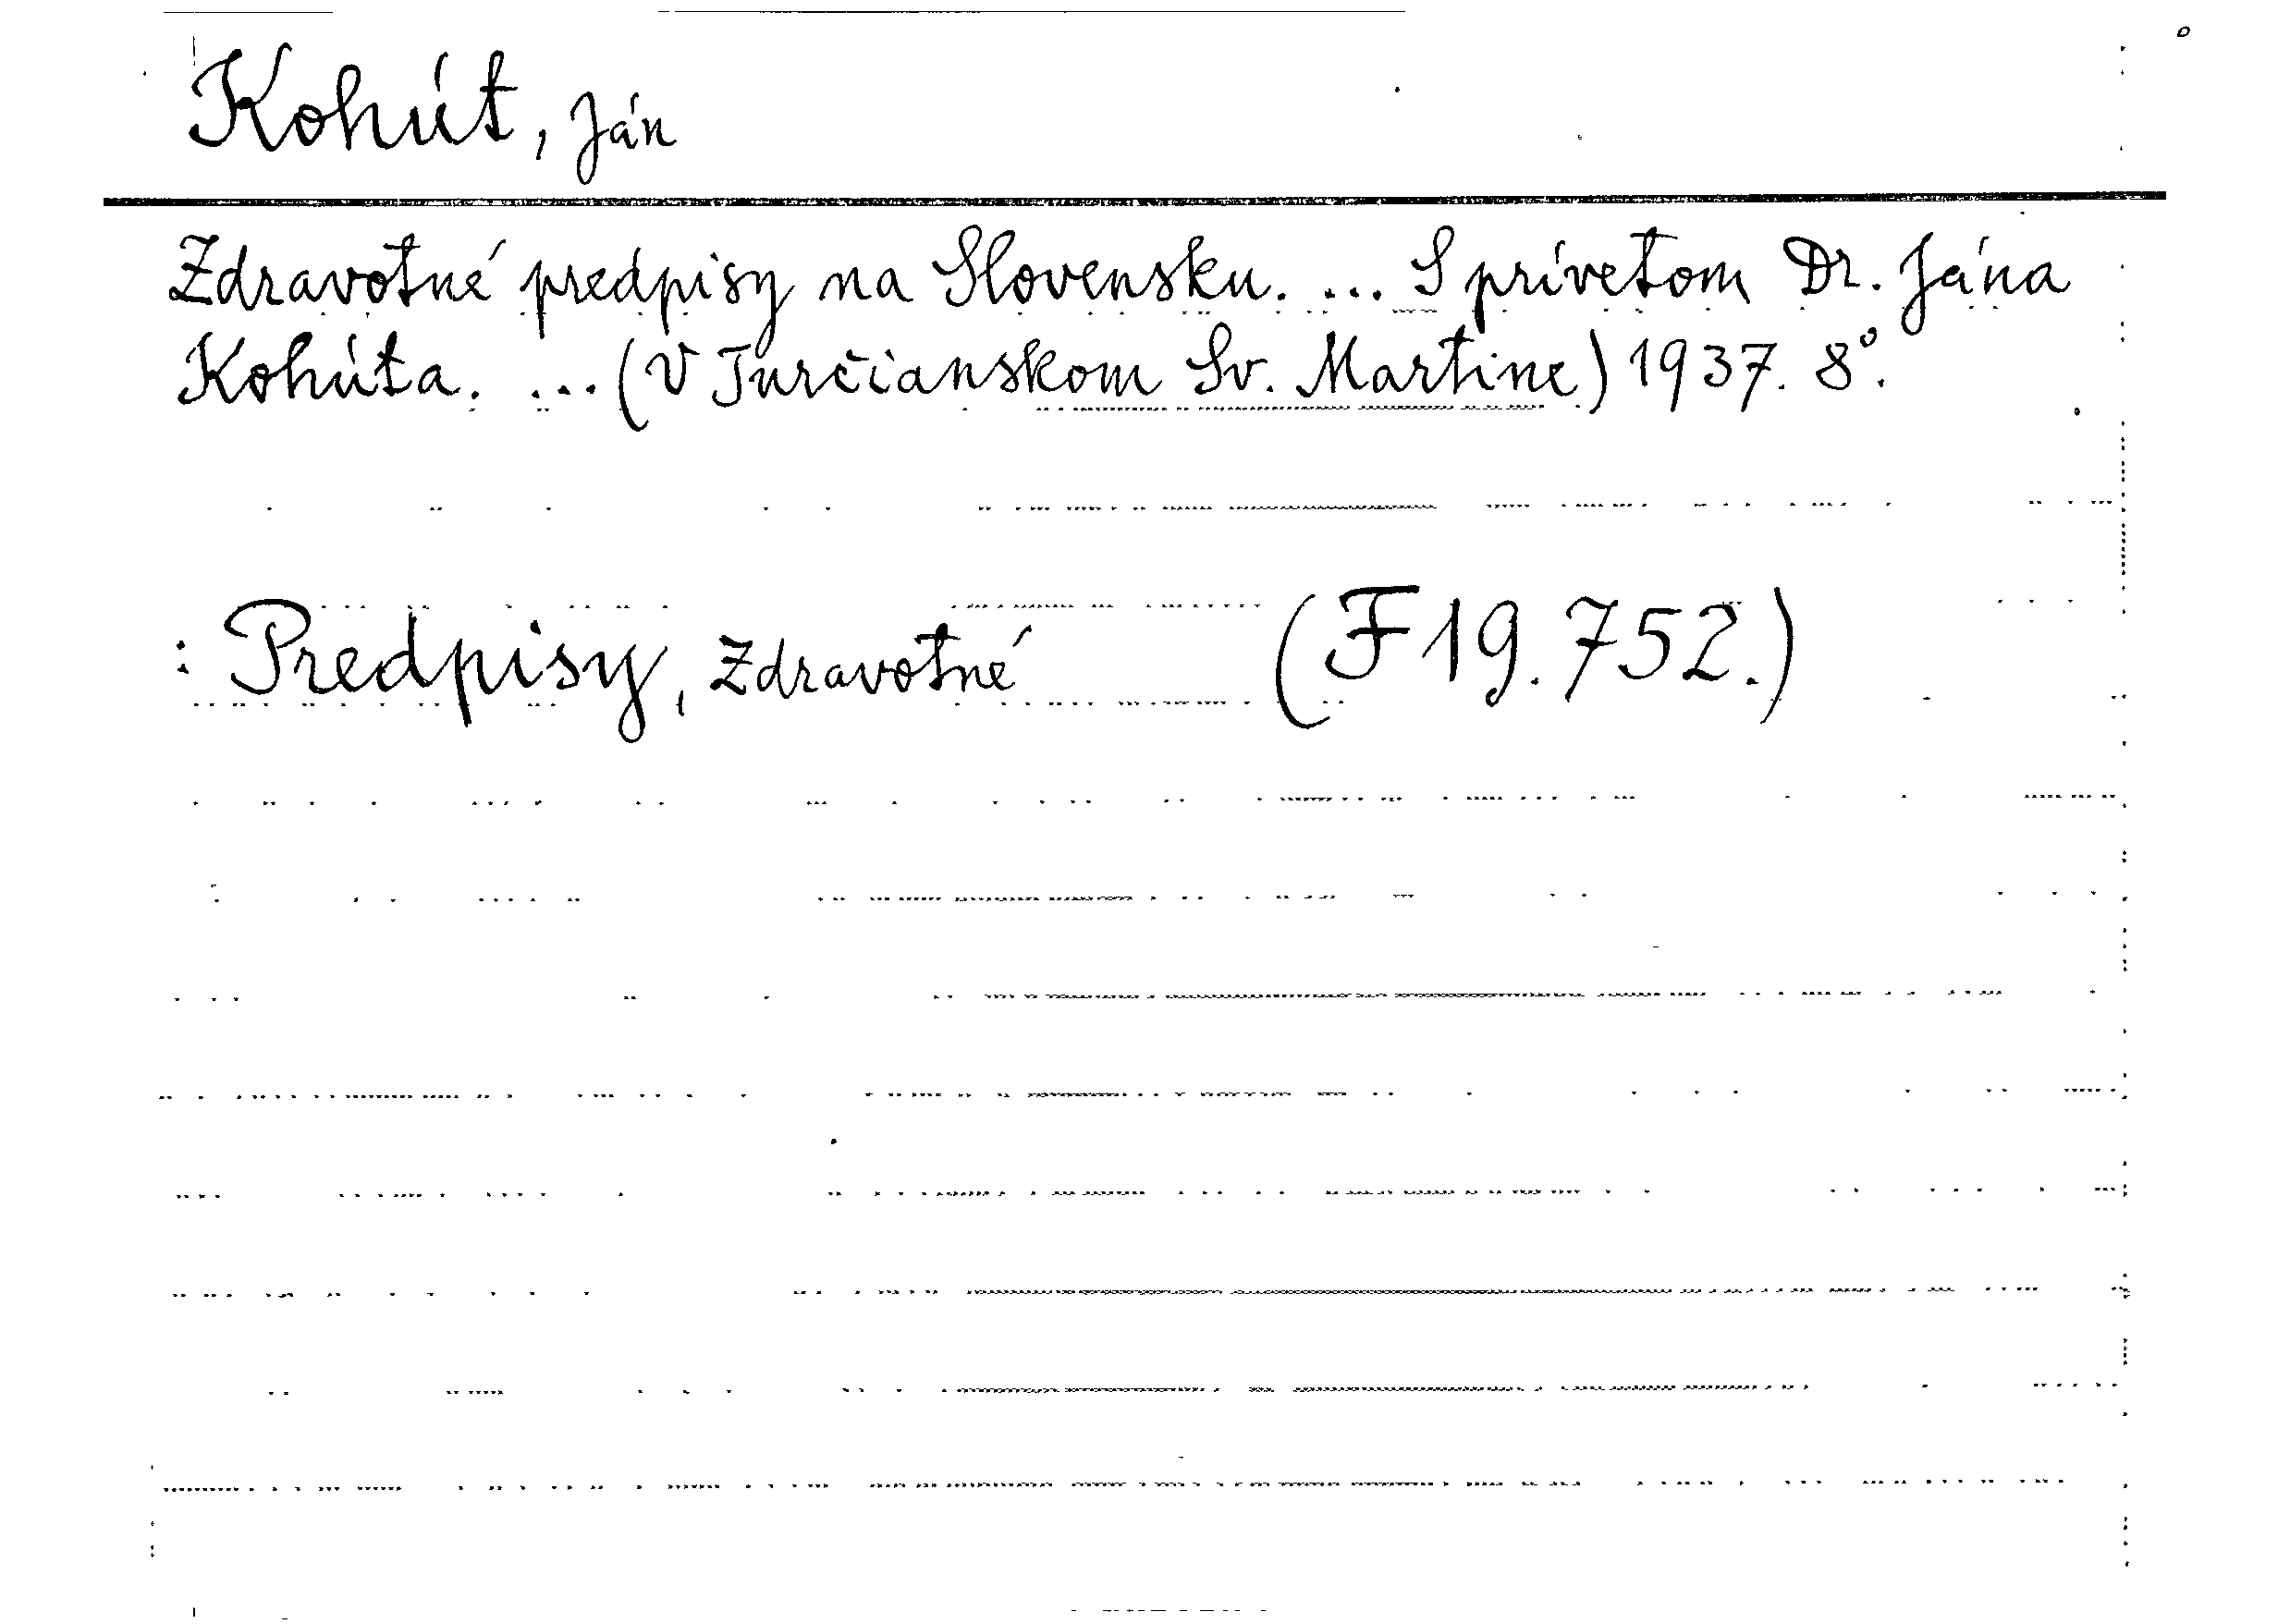 Kohút, Ján
Zdravotné predpisy na Slovensku. ... S prívetom Dr. Jána
Kohúta. ... (V Turčianskom Sv. Martine) 1937. 8°.
: Predpisy, Zdravotné (F 19.752.)